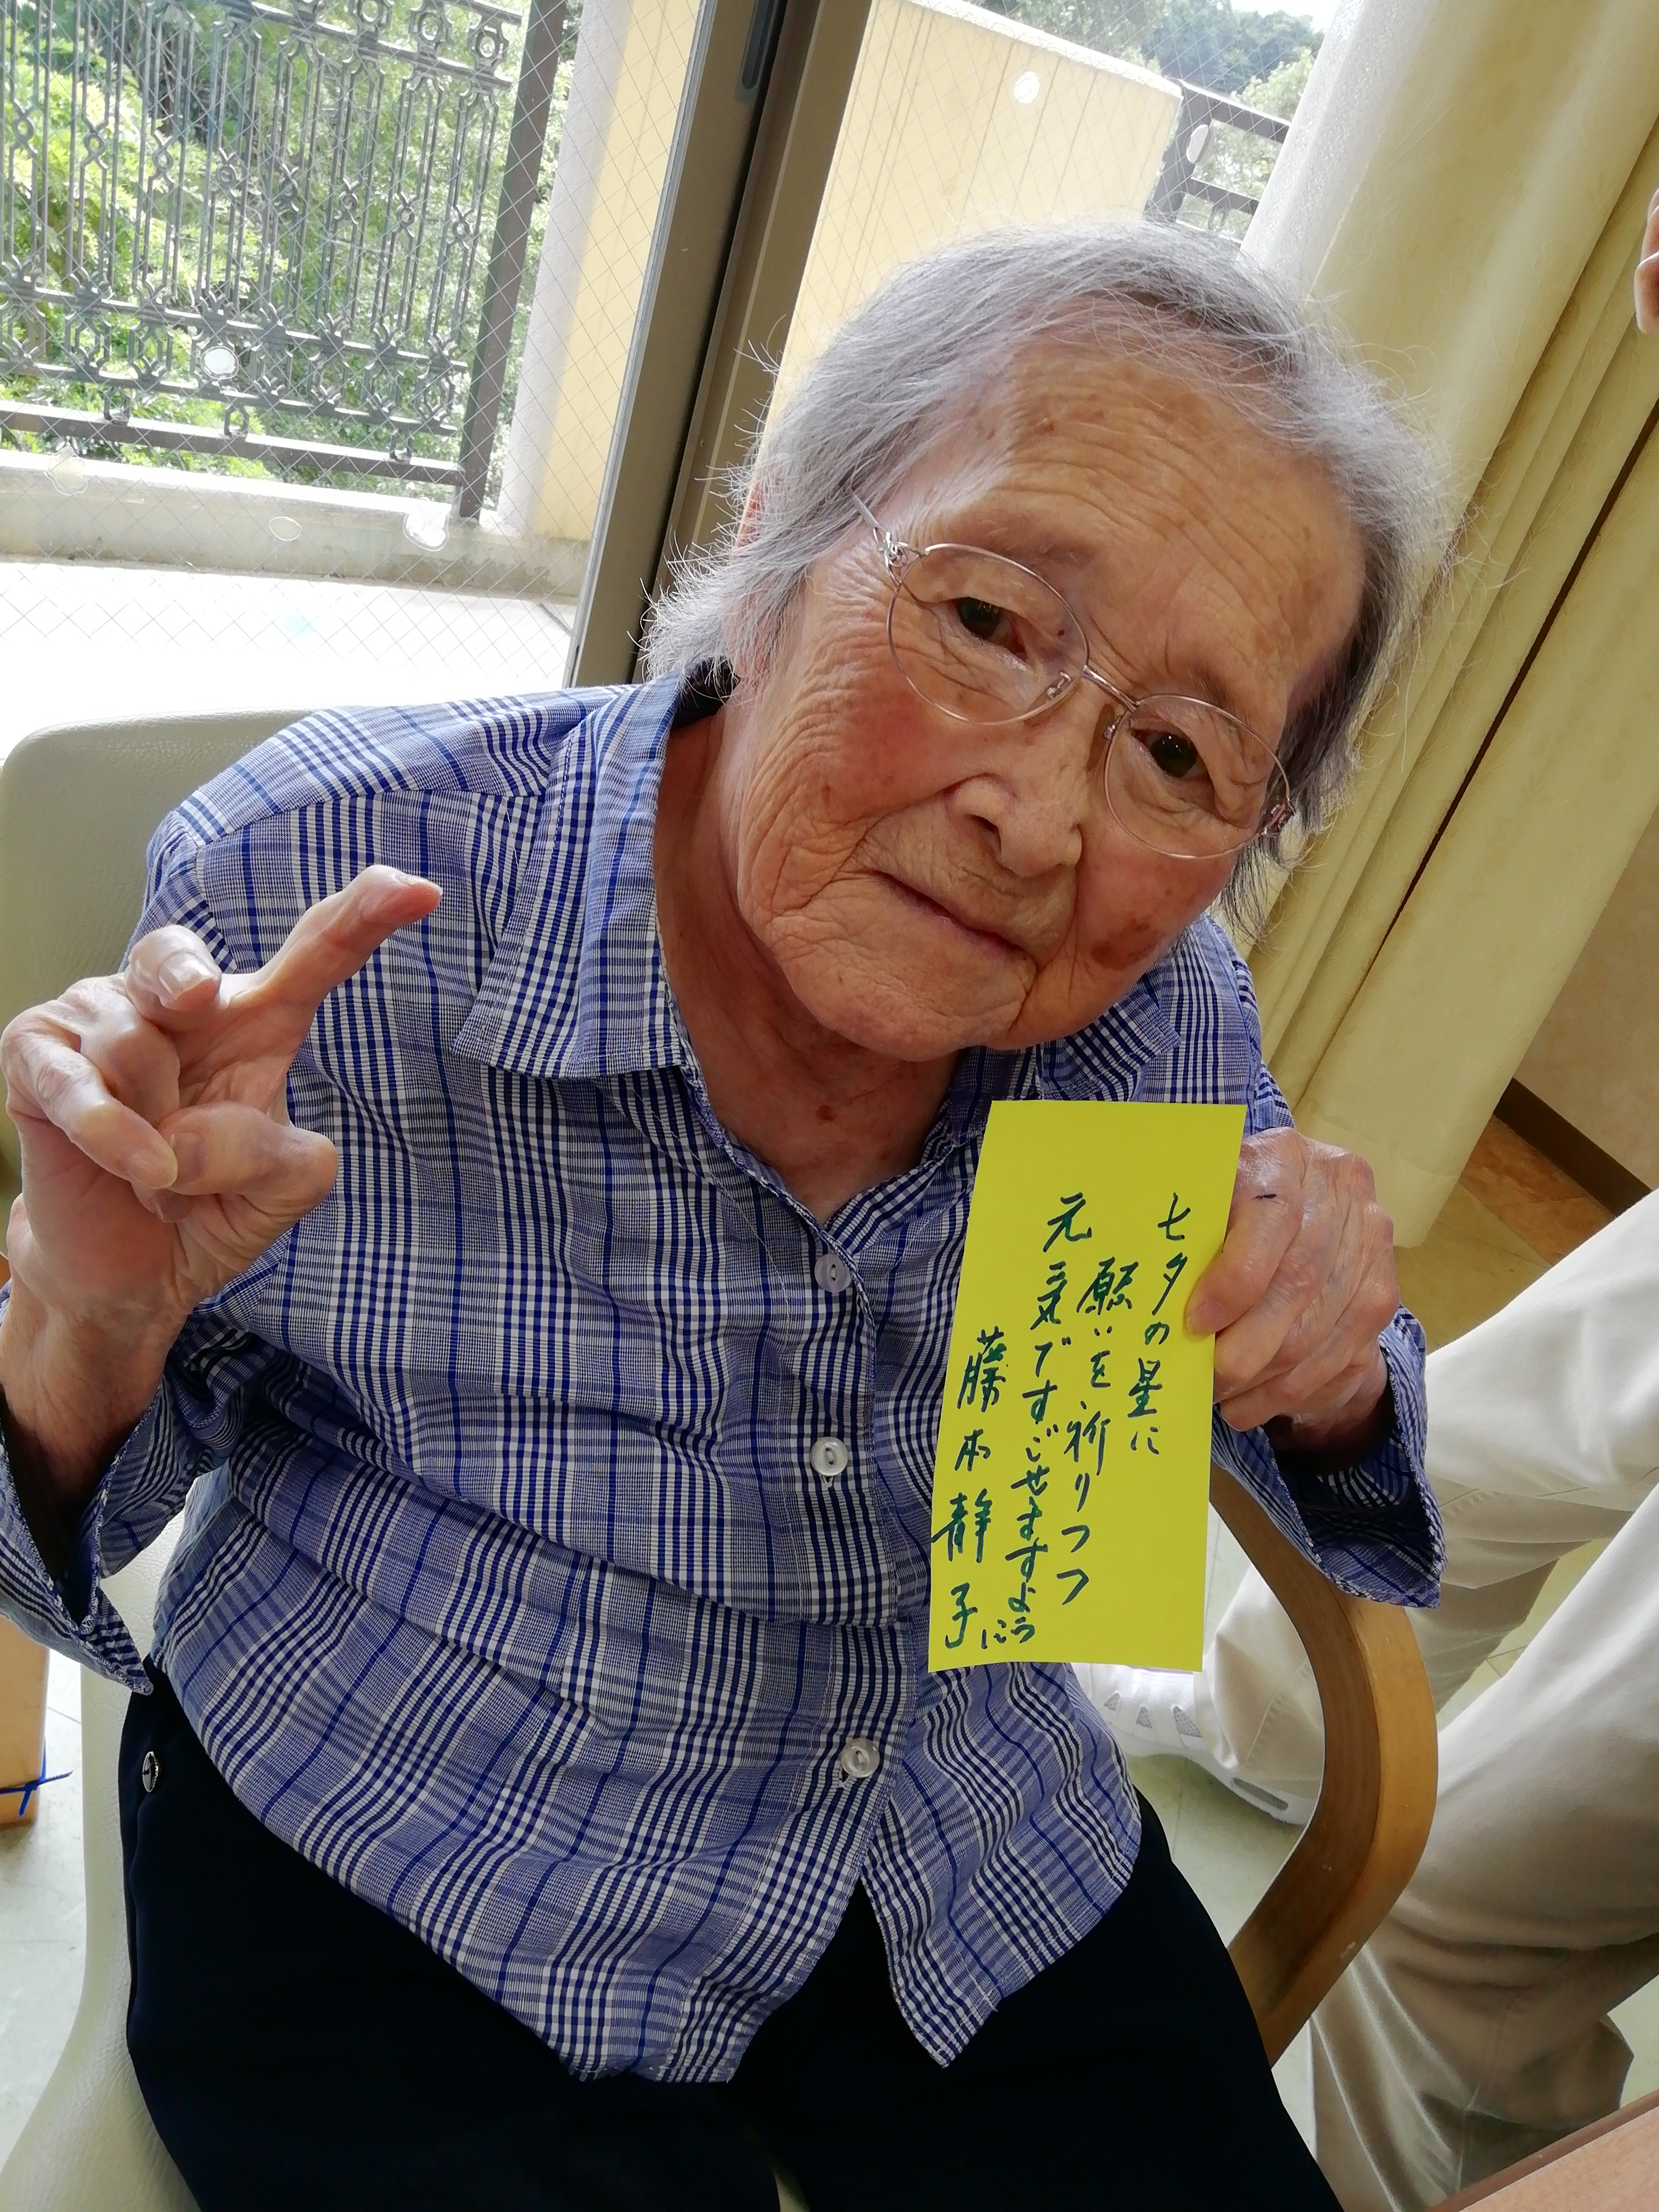 七夕の星に
願いを祈りつつ
元気ですごせますように
藤本静子